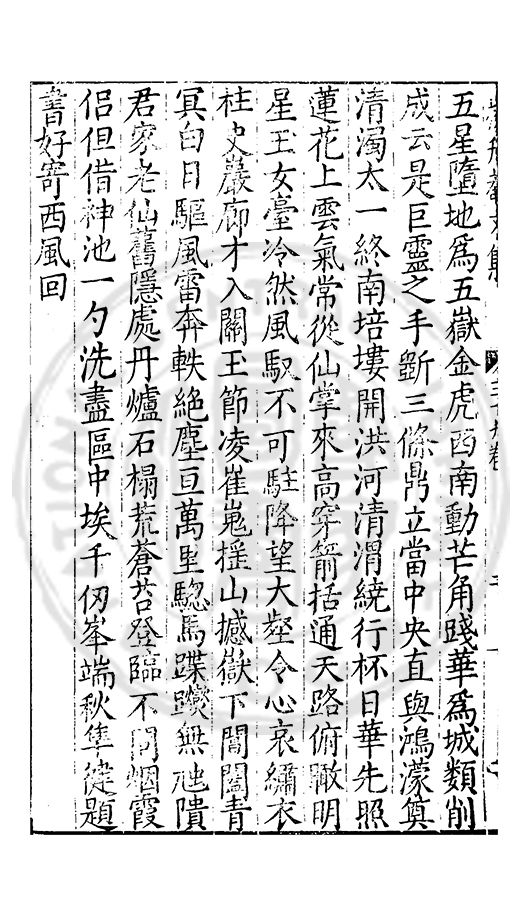 五星墮地爲五嶽金虎西南動芒角踐華爲城類削
成云是巨靈之手斲三條鼎立當中央直與鴻濛奠
清濁太一終南培塿開洪河清渭繞行杯日華先照
蓮花上雲氣常從仙掌來高穿箭括通天路俯瞰明
星玉女臺冷然風馭不可駐降望大壑令心哀繡衣
柱史巖廊才入關玉節凌崔嵬搖山撼嶽下閶闔青
冥白日驅風雷奔軼絶塵亘萬里驄馬蹀躞無虺隤
君家老仙舊隱處丹爐石榻荒蒼苔登臨不問烟霞
侣但借神池一勺洗盡區中埃千仞峯端秋隼健題
書好寄西風回